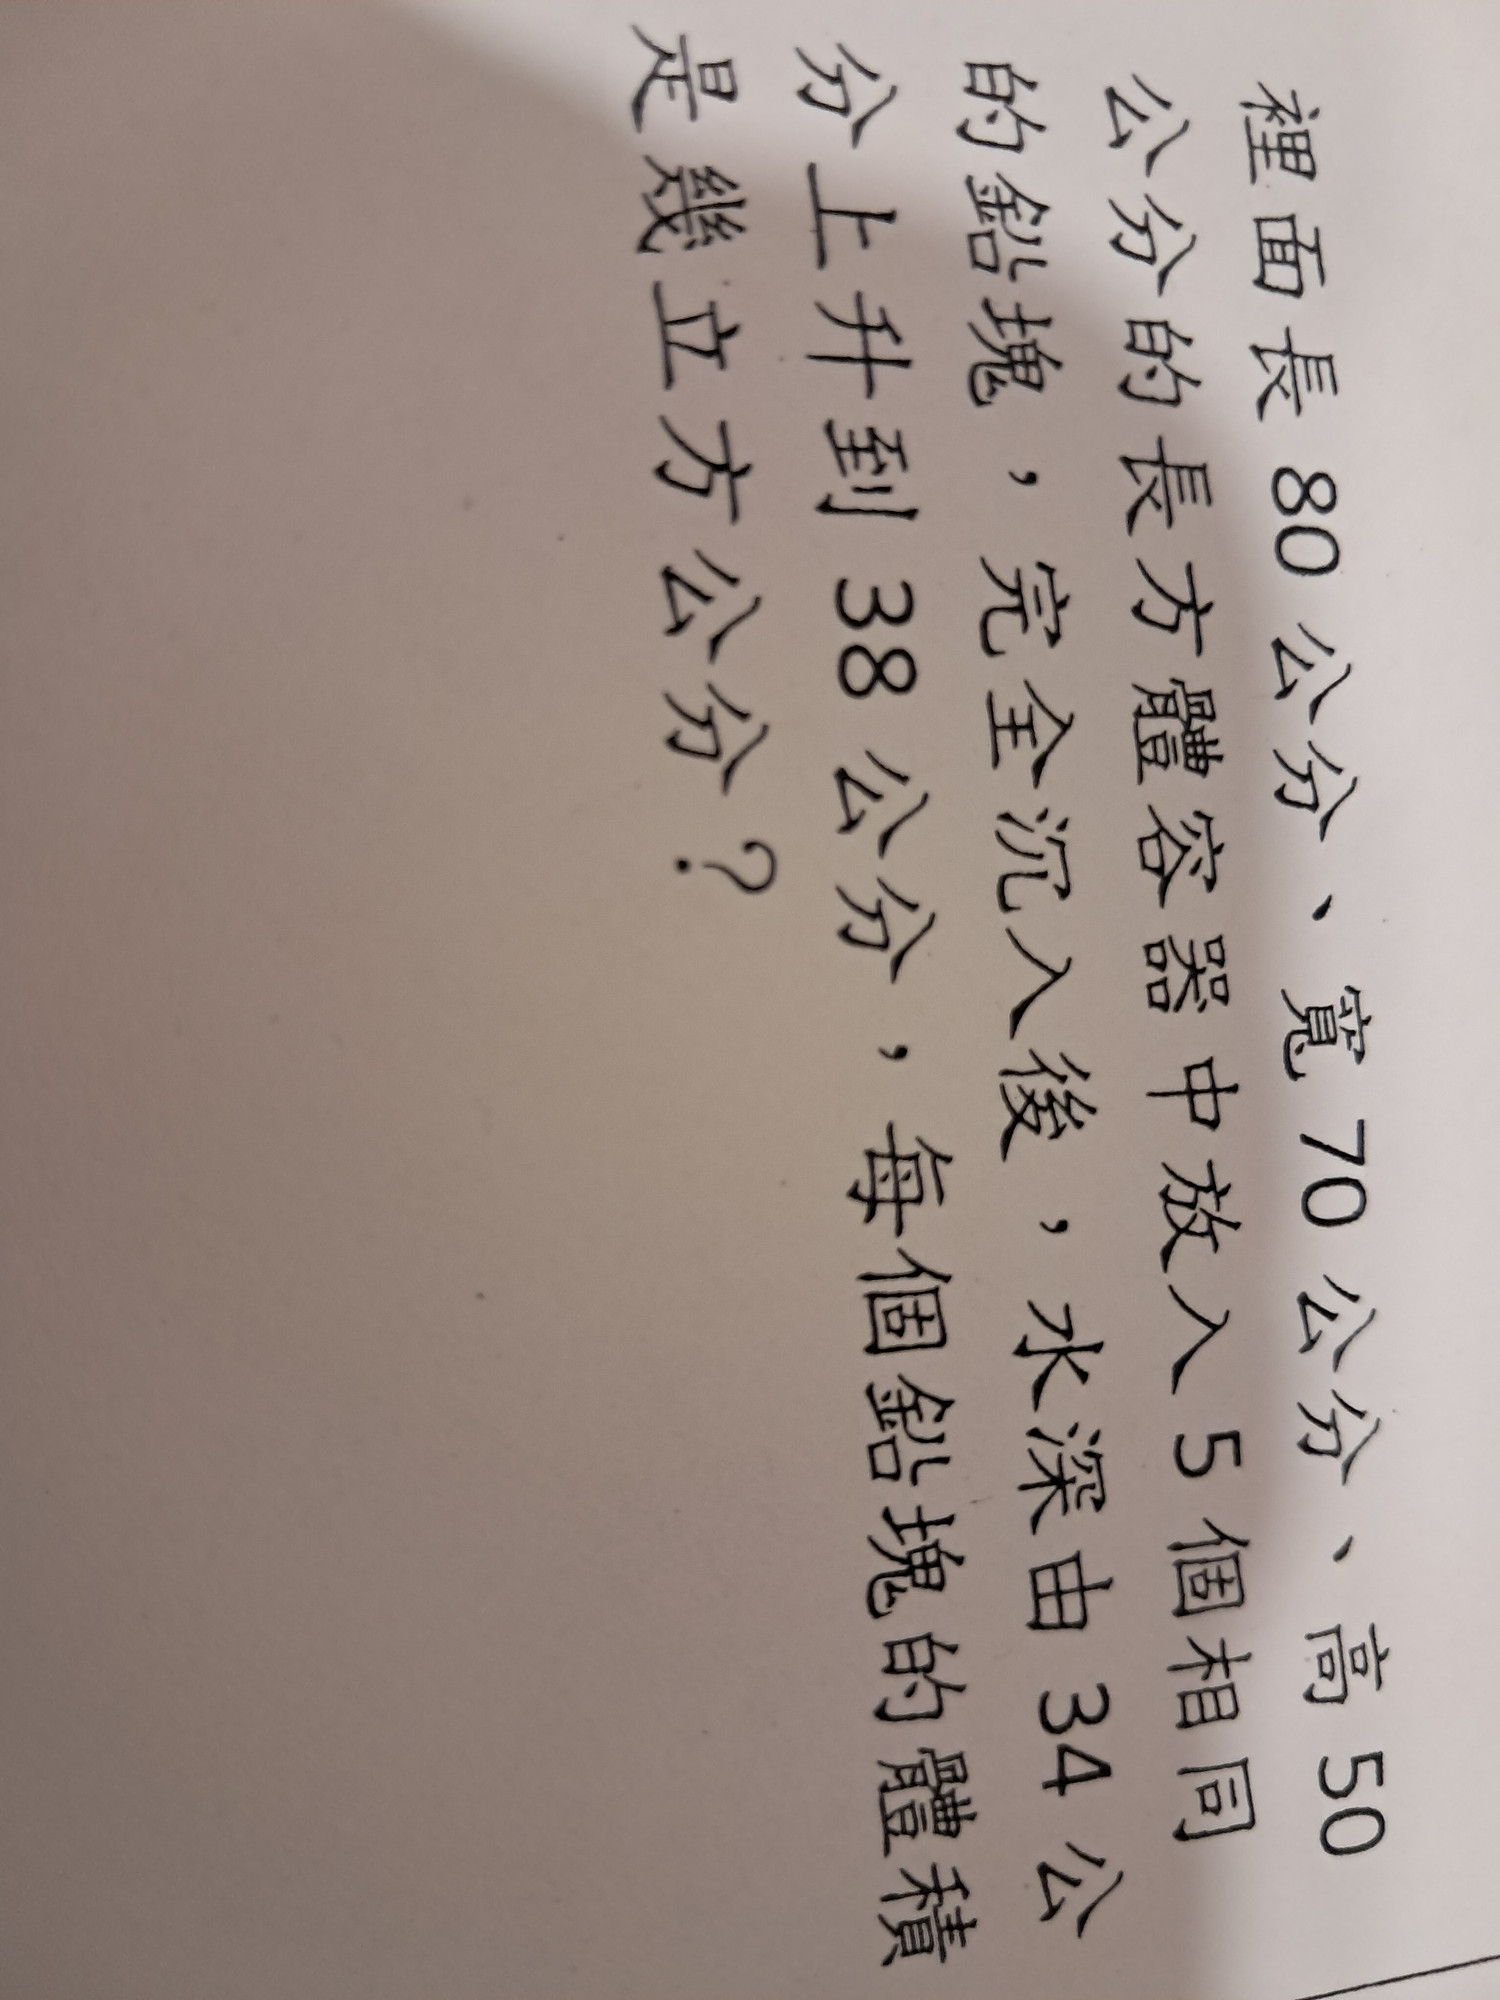 裡面長 80 公分、寬 70 公分、高 50
公分的長方體容器中放入 5 個相同
的鉛塊，完全沉入後，水深由 34 公
分上升到 38 公分，每個鉛塊的體積
是幾立方公分？